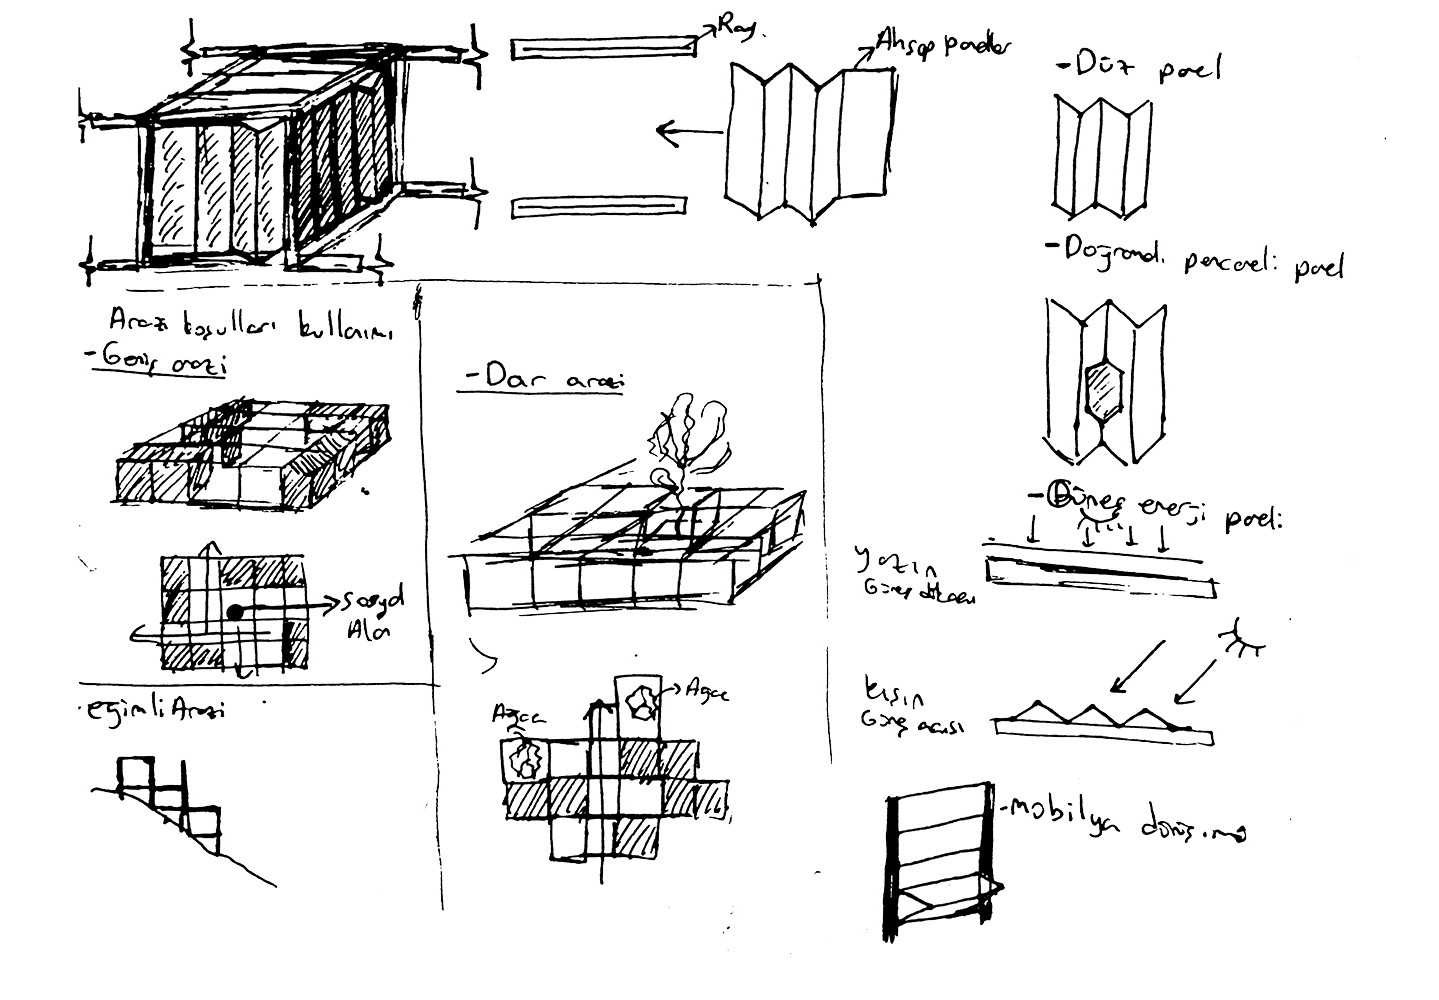 Ray.
Ahşap paneller
-Düz panel
-Doğramalı pencereli panel
Arazi koşulları kullanımı
-Geniş arazi
-Dar arazi
-Güneş enerji paneli
yazın
Güneş dikaçısı
Sosyal
Alan
kışın
Güneş açısı
eğimli Arazi
Ağaç
Ağaç
-mobilya dönüşümü